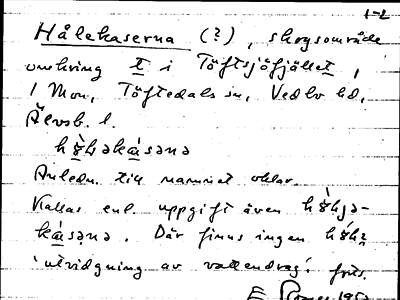 1-2
Hålekaserna (?), skogsområde
omkring t i Töftsjöfjället,
1 Mon, Töftedals sn, Vedbo hd,
Älvsb. l.
Anledn. till namnet oklar.
Kallas enl. uppgift även
Där finns ingen
'utvidgning av vattendrag'
E